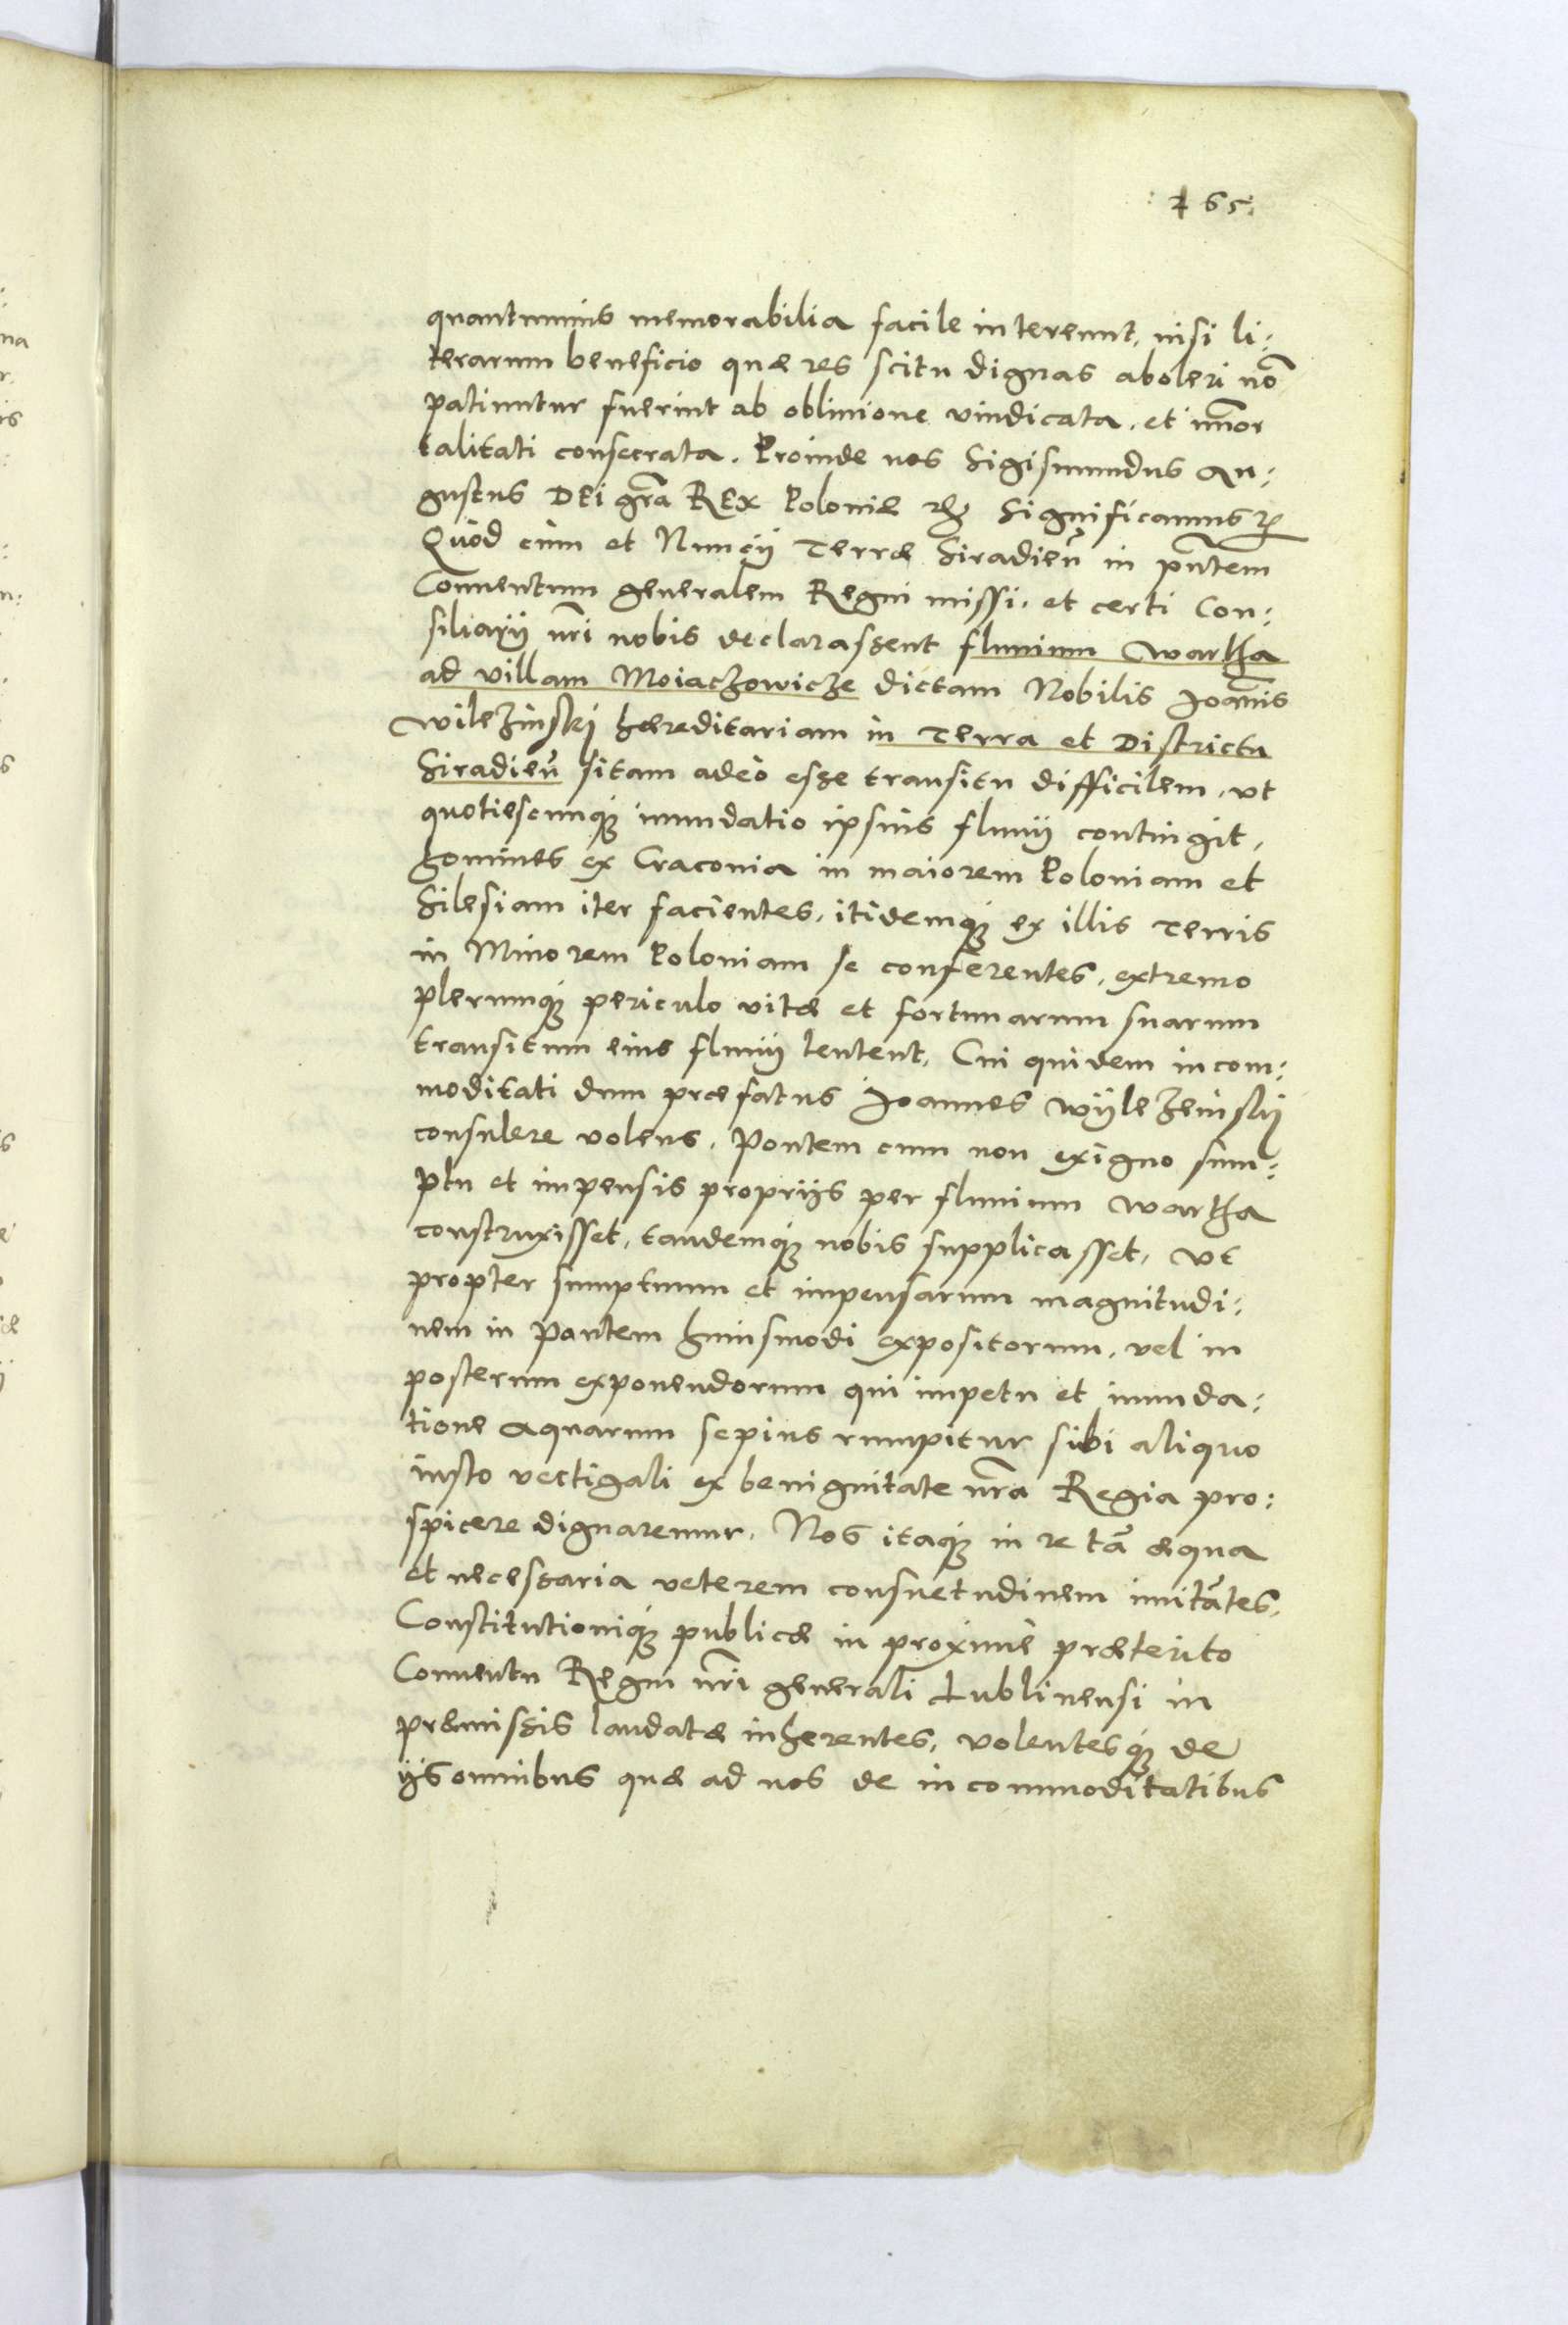 : 265.
quantumuis memorabilia facile intereunt, nisi li:
terarum beneficio quæ res scitu dignas aboleri nō
patiuntur fuerint ab obliuione vindicata, et im̄or
talitati consecrata. Proinde nos Sigismundus Au:
gustus DEi grā REx Poloniæ etc Significamus etc
Quòd cùm et Nuncij Terræ Siradieñ in pn̄tem
Conuentum generalem Regni missi, et certi Con:
siliarij nr̄i nobis declarassent fluuium Wartha
ad villam Moiaczowicze dictam Nobilis Joan̄is
Wilezinskj hæreditariam in Terra et Districtu
Siradieñ sitam adeò esse transitu difficilem, vt
quotiescunq; inundatio ipsius fluuij contingit,
homines ex Cracouia in maiorem Poloniam et
Silesiam iter facientes, itidemq; ex illis Terris
in Minorem Poloniam se conferentes, extremo
plerunq; periculo vitæ et fortunarum suarum
transitum eius fluuij tentent. Cui quidem incom:
moditati dum præfatus Joannes Wÿlezeinskij
consulere volens, Pontem cum non exiguo sum:
ptu et impensis proprijs per fluuium Wartha
construxisset, tandemq; nobis supplicasset, vt
propter sumptuum et impensarum magnitudi:
nem in Pontem huiusmodi expositorum, vel in
posterum exponendorum qui impetu et inunda:
tione aquarum sepius rumpitur sibi aliquo
iusto vectigali ex benignitate nr̄a Regia pro:
spicere dignaremur. Nos itaq; in re tā æqua
et necessaria veterem consuetudinem imitātes,
Constitutioniq; publicæ in proximè præterito
Conuentu Regni nr̄i generali Lublinensi in
præmissis laudatæ inherentes, volentesq; de
ijs omnibus quæ ad nos de incommoditatibus